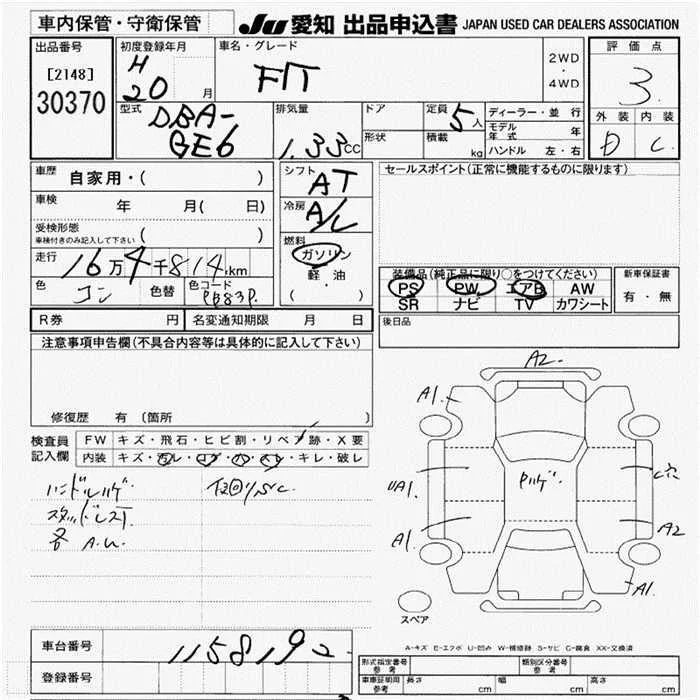 車内保管・守衛保管
JU 愛知 出品申込書 JAPAN USED CAR DEALERS ASSOCIATION
出品番号
[2148]
30370
初度登録年月
H
20 月
車名・グレード
FIT
2WD
・
4WD
評価点
3
外装 内装
D C
型式
DBA-
GE6
排気量
1.33CC
ドア
形状
定員
5人
積載
kg
ディーラー・並行
モデル年式 年
ハンドル 左・右
車歴 自家用・( )
車検 年 月( 日)
受検形態
車検付きのみ記入して下さい ( )
走行 16万4千814km
色 コン 色替 色コード PB83P
シフト AT
冷房 A/C
燃料
ガソリン
軽油
( ・ )
セールスポイント(正常に機能するものに限ります)
装備品(純正品に限り○をつけてください)
PS PW エアB AW
SR ナビ TV カワシート
新車保証書
有・無
後日品
R券 円 名変通知期限 月 日
注意事項申告欄(不具合内容等は具体的に記入して下さい)
修復歴 有 〔箇所 〕
検査員
記入欄
FW キズ・飛石・ヒビ割・リペア跡・X要
内装 キズ・ヨレ・コゲ・穴・スレ・キレ・破レ
ハンドルハゲ
スタッドレスT
各 A.U.
A2
A1
UA1
A1
ハゲ
C穴
A2
A1
スペア
A-キズ E-エクボ U-凹み W-補修跡 S-サビ C-腐食 XX-交換済
車台番号 1158192
登録番号
形式指定番号
参考
類別区分番号
参考
車庫証明用
参考
長さ cm 幅 cm 高さ cm